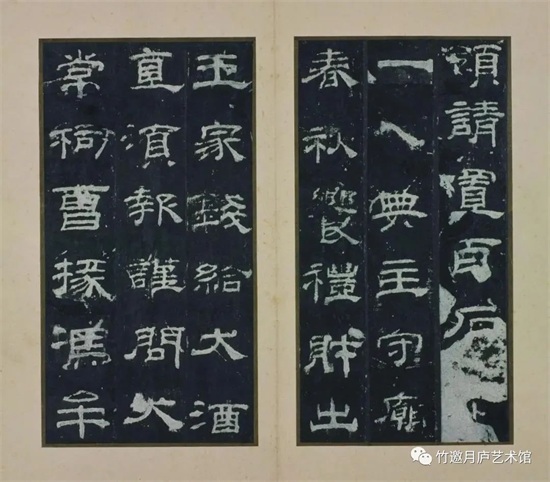 頌請置百石
一人典主守廟
春秋饗禮財出
王家錢給大酒
直須報謹問大
常祠曹掾馮牟
竹邀月庐艺术馆